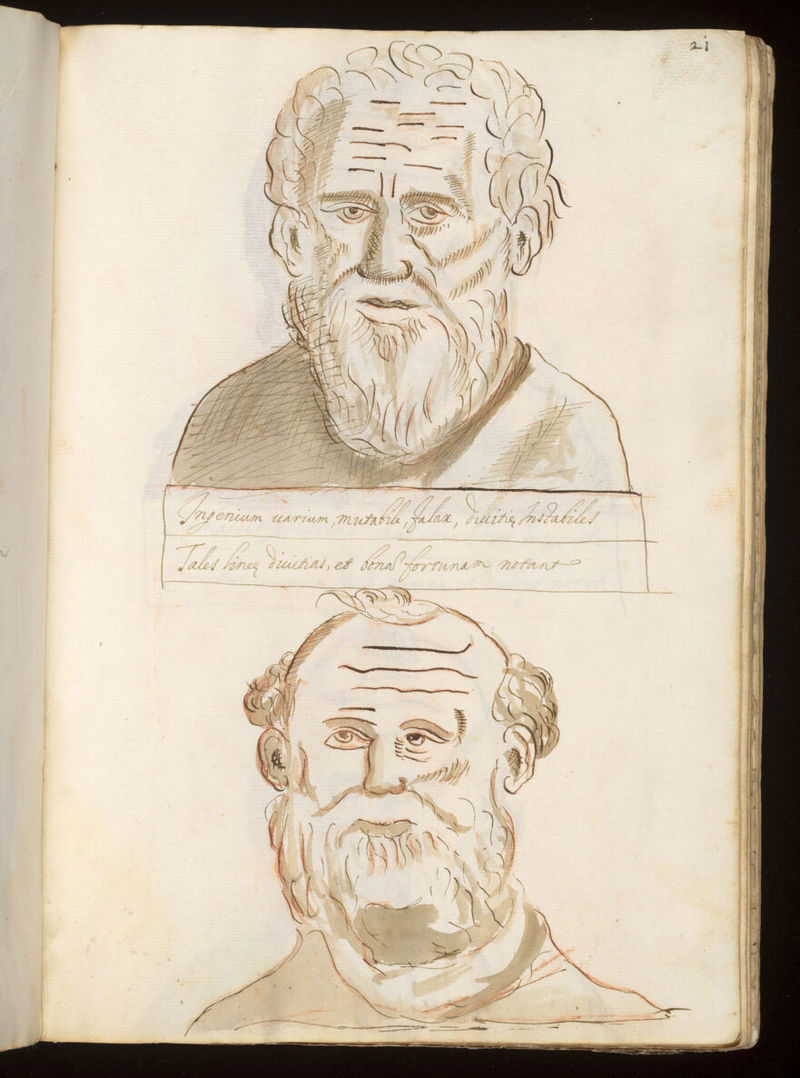 21
Ingenium uarium, mutabile, falax, diuitię instabiles
Tales lineę diuitias, et bonā fortunam notant